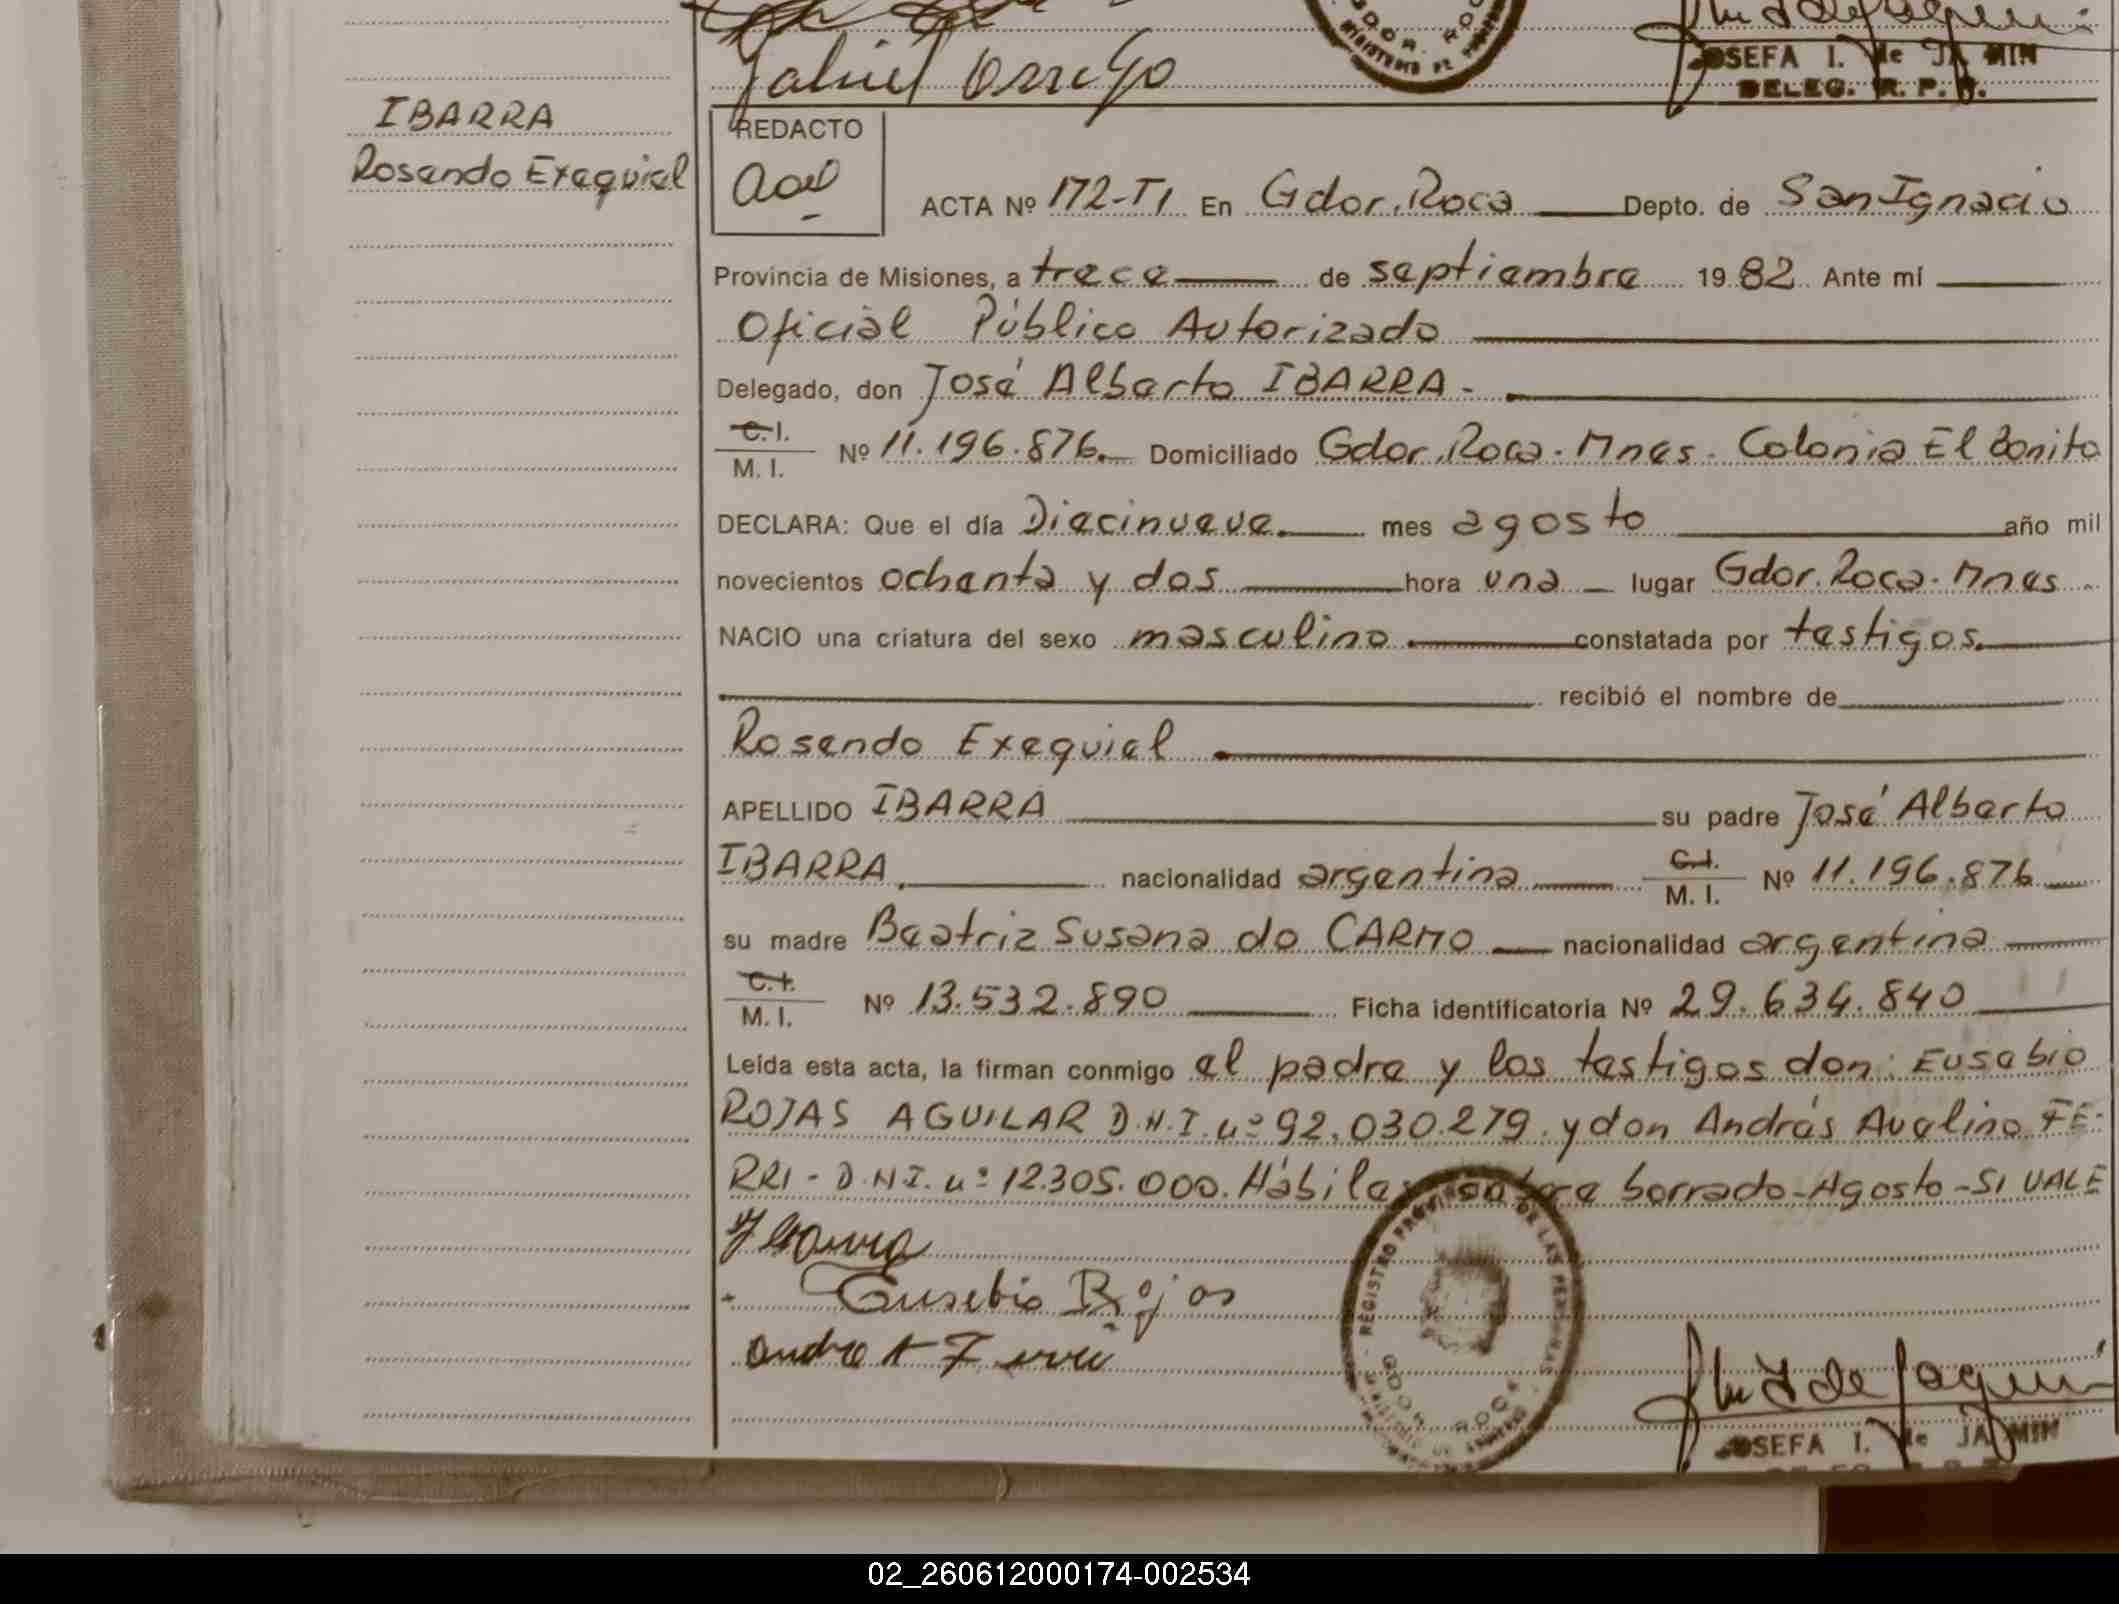 Gabriel Orrego
GDOR. ROCA
JOSEFA I. de JA MIN
DELEG. R. P. P.
IBARRA
Rosendo Exequiel
REDACTO
ACTA Nº 172-T1 En Gdor. Roca Depto. de San Ignacio
Provincia de Misiones, a trece de septiembre 1982 Ante mí
Oficial Público Autorizado
Delegado, don José Alberto IBARRA -
C.I.
M. I. Nº 11.196.876. Domiciliado Gdor. Roca. Mnes. Colonia El Bonito
DECLARA: Que el día Diecinueve. mes agosto año mil
novecientos ochenta y dos hora una lugar Gdor. Roca. Mnes
NACIO una criatura del sexo masculino. constatada por testigos.
recibió el nombre de
Rosendo Exequiel
APELLIDO IBARRA su padre José Alberto
IBARRA. nacionalidad argentina C.I. M. I. Nº 11.196.876
su madre Beatriz Susana do CARMO nacionalidad argentina
C.I.
M. I. Nº 13.532.890 Ficha identificatoria Nº 29.634.840
Leída esta acta, la firman conmigo el padre y los testigos don: Eusebio
ROJAS AGUILAR D.N.I. nº 92.030.279. y don Andrés Avelino FE-
RRI - D.N.I. nº 12.305.000. Hábiles sobre borrado - Agosto - SI VALE
Ibarra
Eusebio Rojas
Andre A Ferri
REGISTRO PROVINCIAL DE LAS PERSONAS
GDOR. ROCA
JOSEFA I. de JA MIN
02_260612000174-002534